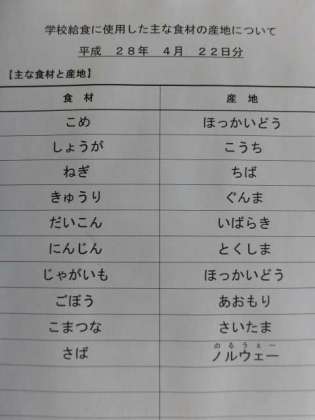 学校給食に使用した主な食材の産地について
平成 28年 4月 22日分
【主な食材と産地】
食材 産地
こめ ほっかいどう
しょうが こうち
ねぎ ちば
きゅうり ぐんま
だいこん いばらき
にんじん とくしま
じゃがいも ほっかいどう
ごぼう あおもり
こまつな さいたま
のるうぇー
さば ノルウェー